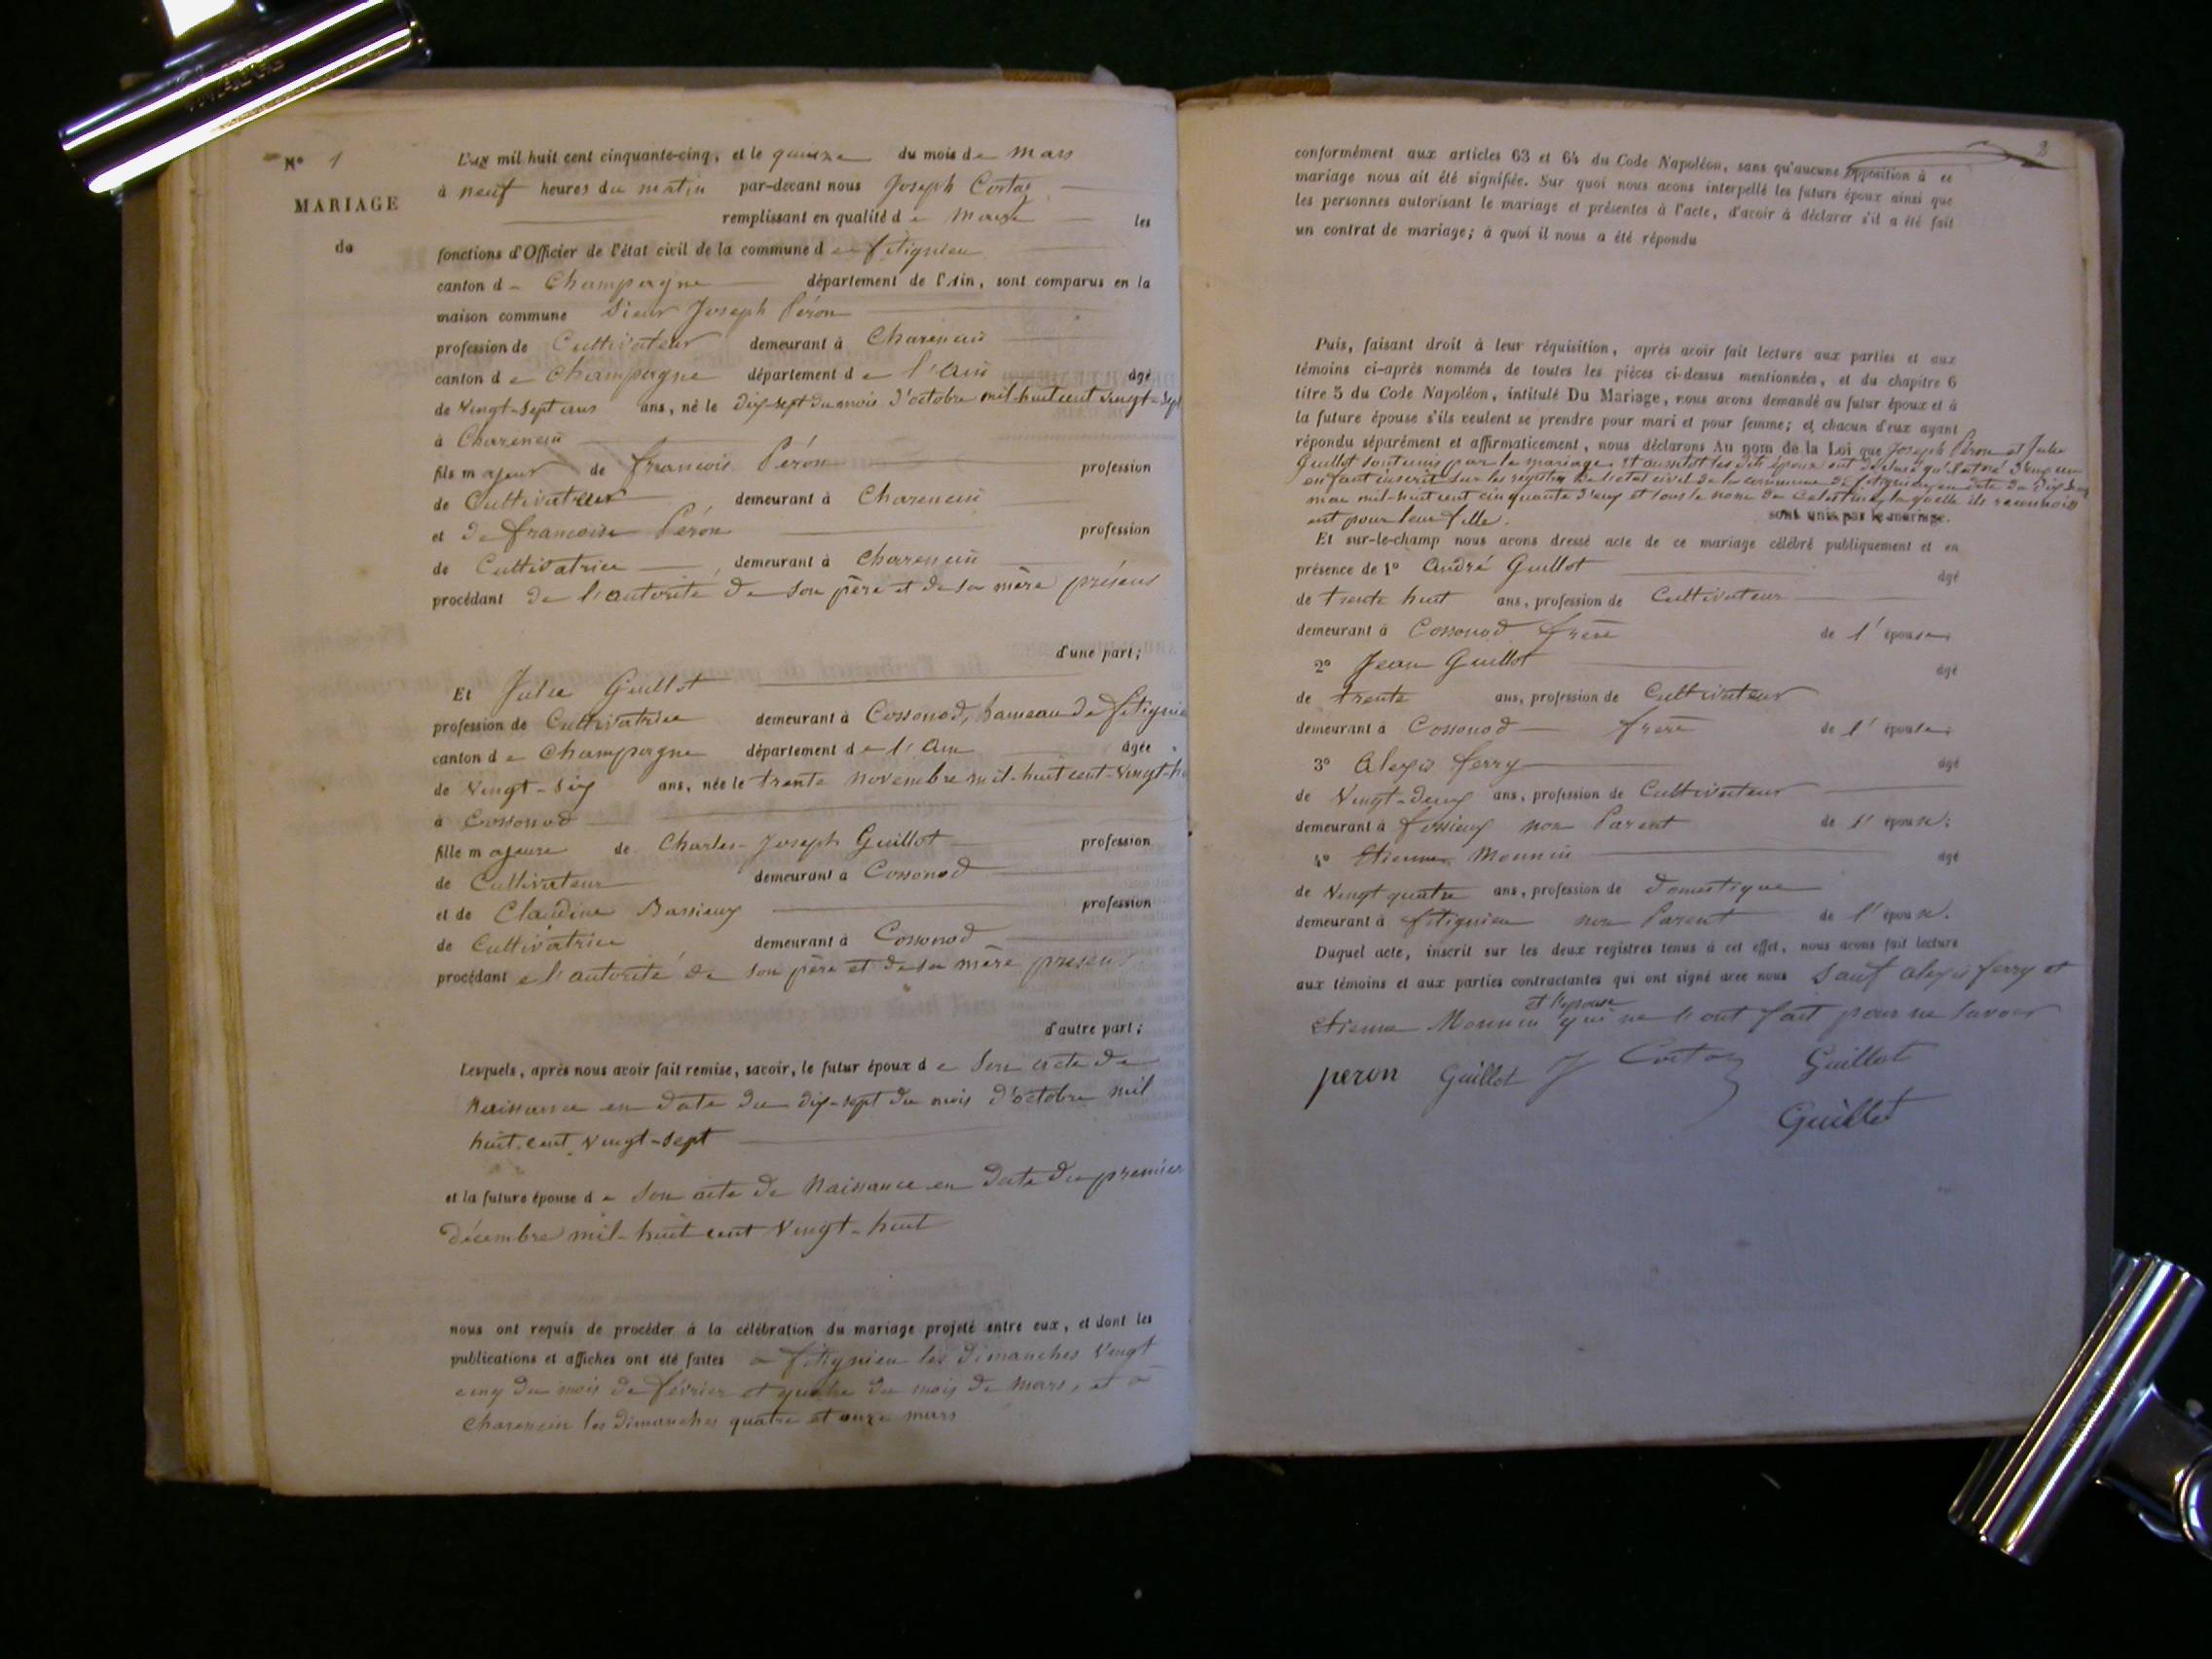 N° 1
MARIAGE
de
L'an mil huit cent cinquante-cinq, et le quinze du mois de mars
à neuf heures du matin par-devant nous Joseph Cortaz
remplissant en qualité de maire les
fonctions d'Officier de l'état civil de la commune de fitignieu
canton de Champagne département de l'Ain, sont comparus en la
maison commune Sieur Joseph Péron
profession de Cultivateur demeurant à Charencin
canton de Champagne département de l'Ain âgé
de Vingt-Sept ans ans, né le dix-sept du mois d'octobre mil-huit cent vingt-sept
à Charencin
fils majeur de francois Péron profession
de Cultivateur demeurant à Charencin
et de francoise Péron profession
de Cultivatrice, demeurant à Charencin
procédant de l'autorité de son père et de sa mère présens
d'une part;
Et Julie Guillot
profession de Cultivatrice demeurant à Cossonod, hameau de fitignieu
canton de Champagne département de l'Ain âgée
de Vingt-Six ans, née le trente novembre mil-huit cent-Vingt-h
à Cossonod
fille majeure de Charles-Joseph Guillot profession
de Cultivateur demeurant à Cossonod
et de Claudine Bassieux profession
de Cultivatrice demeurant à Cossonod
procédant de l'autorité de son père et de sa mère présens
d'autre part;
Lesquels, après nous avoir fait remise, savoir, le futur époux de Son acte de
Naissance en date du dix-sept du mois d'octobre mil
huit cent vingt-sept
et la future épouse de Son acte de Naissance en date du premier
décembre mil-huit cent Vingt-huit
nous ont requis de procéder à la célébration du mariage projeté entre eux, et dont les
publications et affiches ont été faites à fitignieu les dimanches Vingt
cinq du mois de février et quatre du mois de mars, et à
Charencin les dimanches quatre et onze mars
2
conformément aux articles 63 et 64 du Code Napoléon, sans qu'aucune opposition à ce
mariage nous ait été signifiée. Sur quoi nous avons interpellé les futurs époux ainsi que
les personnes autorisant le mariage et présentes à l'acte, d'avoir à déclarer s'il a été fait
un contrat de mariage; à quoi il nous a été répondu
Puis, faisant droit à leur réquisition, après avoir fait lecture aux parties et aux
témoins ci-après nommés de toutes les pièces ci-dessus mentionnées, et du chapitre 6
titre 5 du Code Napoléon, intitulé Du Mariage, nous avons demandé au futur époux et à
la future épouse s'ils veulent se prendre pour mari et pour femme; et chacun d'eux ayant
répondu séparément et affirmativement, nous déclarons Au nom de la Loi que Joseph Péron et Julie
Guillot sont unis par le mariage. et aussitôt les dits époux ont déclaré qu'il est né d'eux un
enfant inscrit sur les registres de l'état civil de la commune de fitignieu en date du dix
mai mil-huit cent cinquante d'eux et sous le nom de Celestine, laquelle ils reconnoiss
ent pour leur fille. sont unis par le mariage.
Et sur-le-champ nous avons dressé acte de ce mariage célébré publiquement et en
présence de 1° André Guillot âgé
de trente huit ans, profession de Cultivateur
demeurant à Cossonod frère de l'épouse;
2° Jean Guillot âgé
de trente ans, profession de Cultivateur
demeurant à Cossonod frère de l'épouse;
3° Alexis ferry âgé
de Vingt-deux ans, profession de Cultivateur
demeurant à fossieux non Parent de l'épouse;
4° Etienne Monnin âgé
de Vingt quatre ans, profession de domestique
demeurant à fitignieu non Parent de l'épouse.
Duquel acte, inscrit sur les deux registres tenus à cet effet, nous avons fait lecture
aux témoins et aux parties contractantes qui ont signé avec nous Sauf alexis ferry et
et l'épouse
etienne Monnin qui ne l'ont fait pour ne savoir
peron Guillot J Cortaz Guillot
Guillot